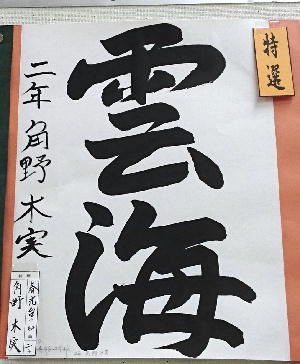 特選
雲海
二年 角野 木実
角野 木実